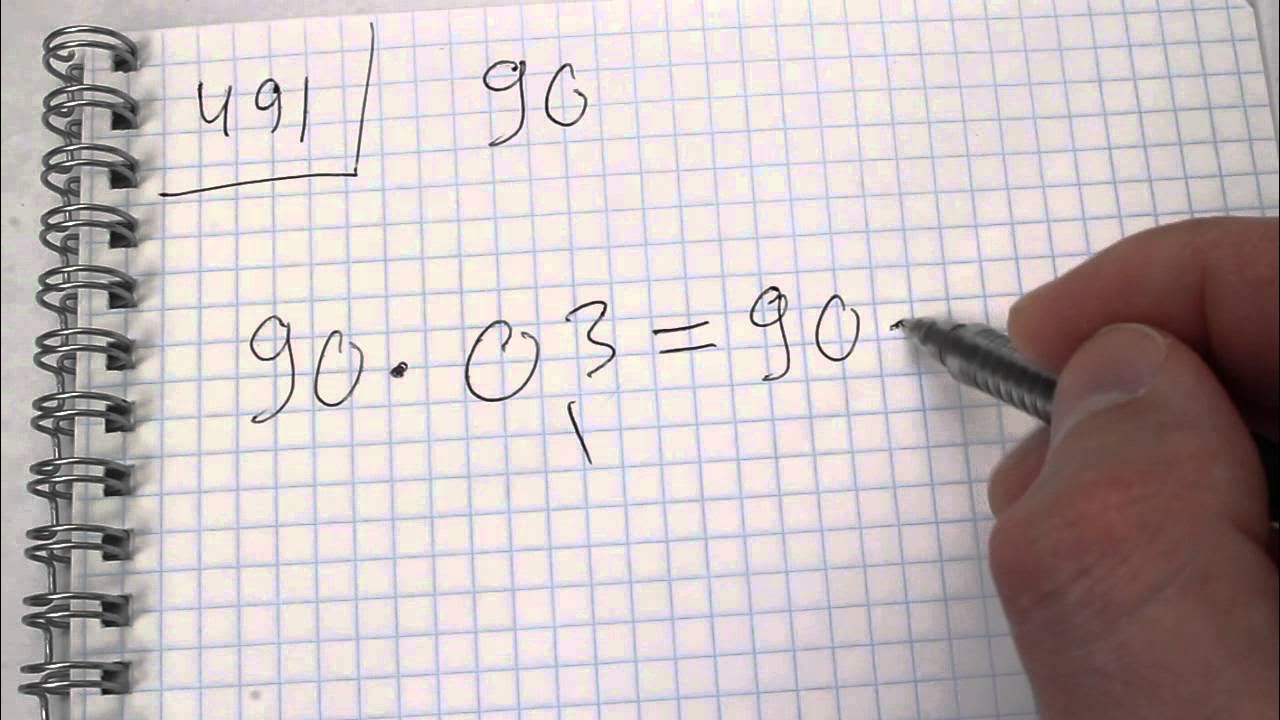 491 90
90 · 0,3 = 90 ·